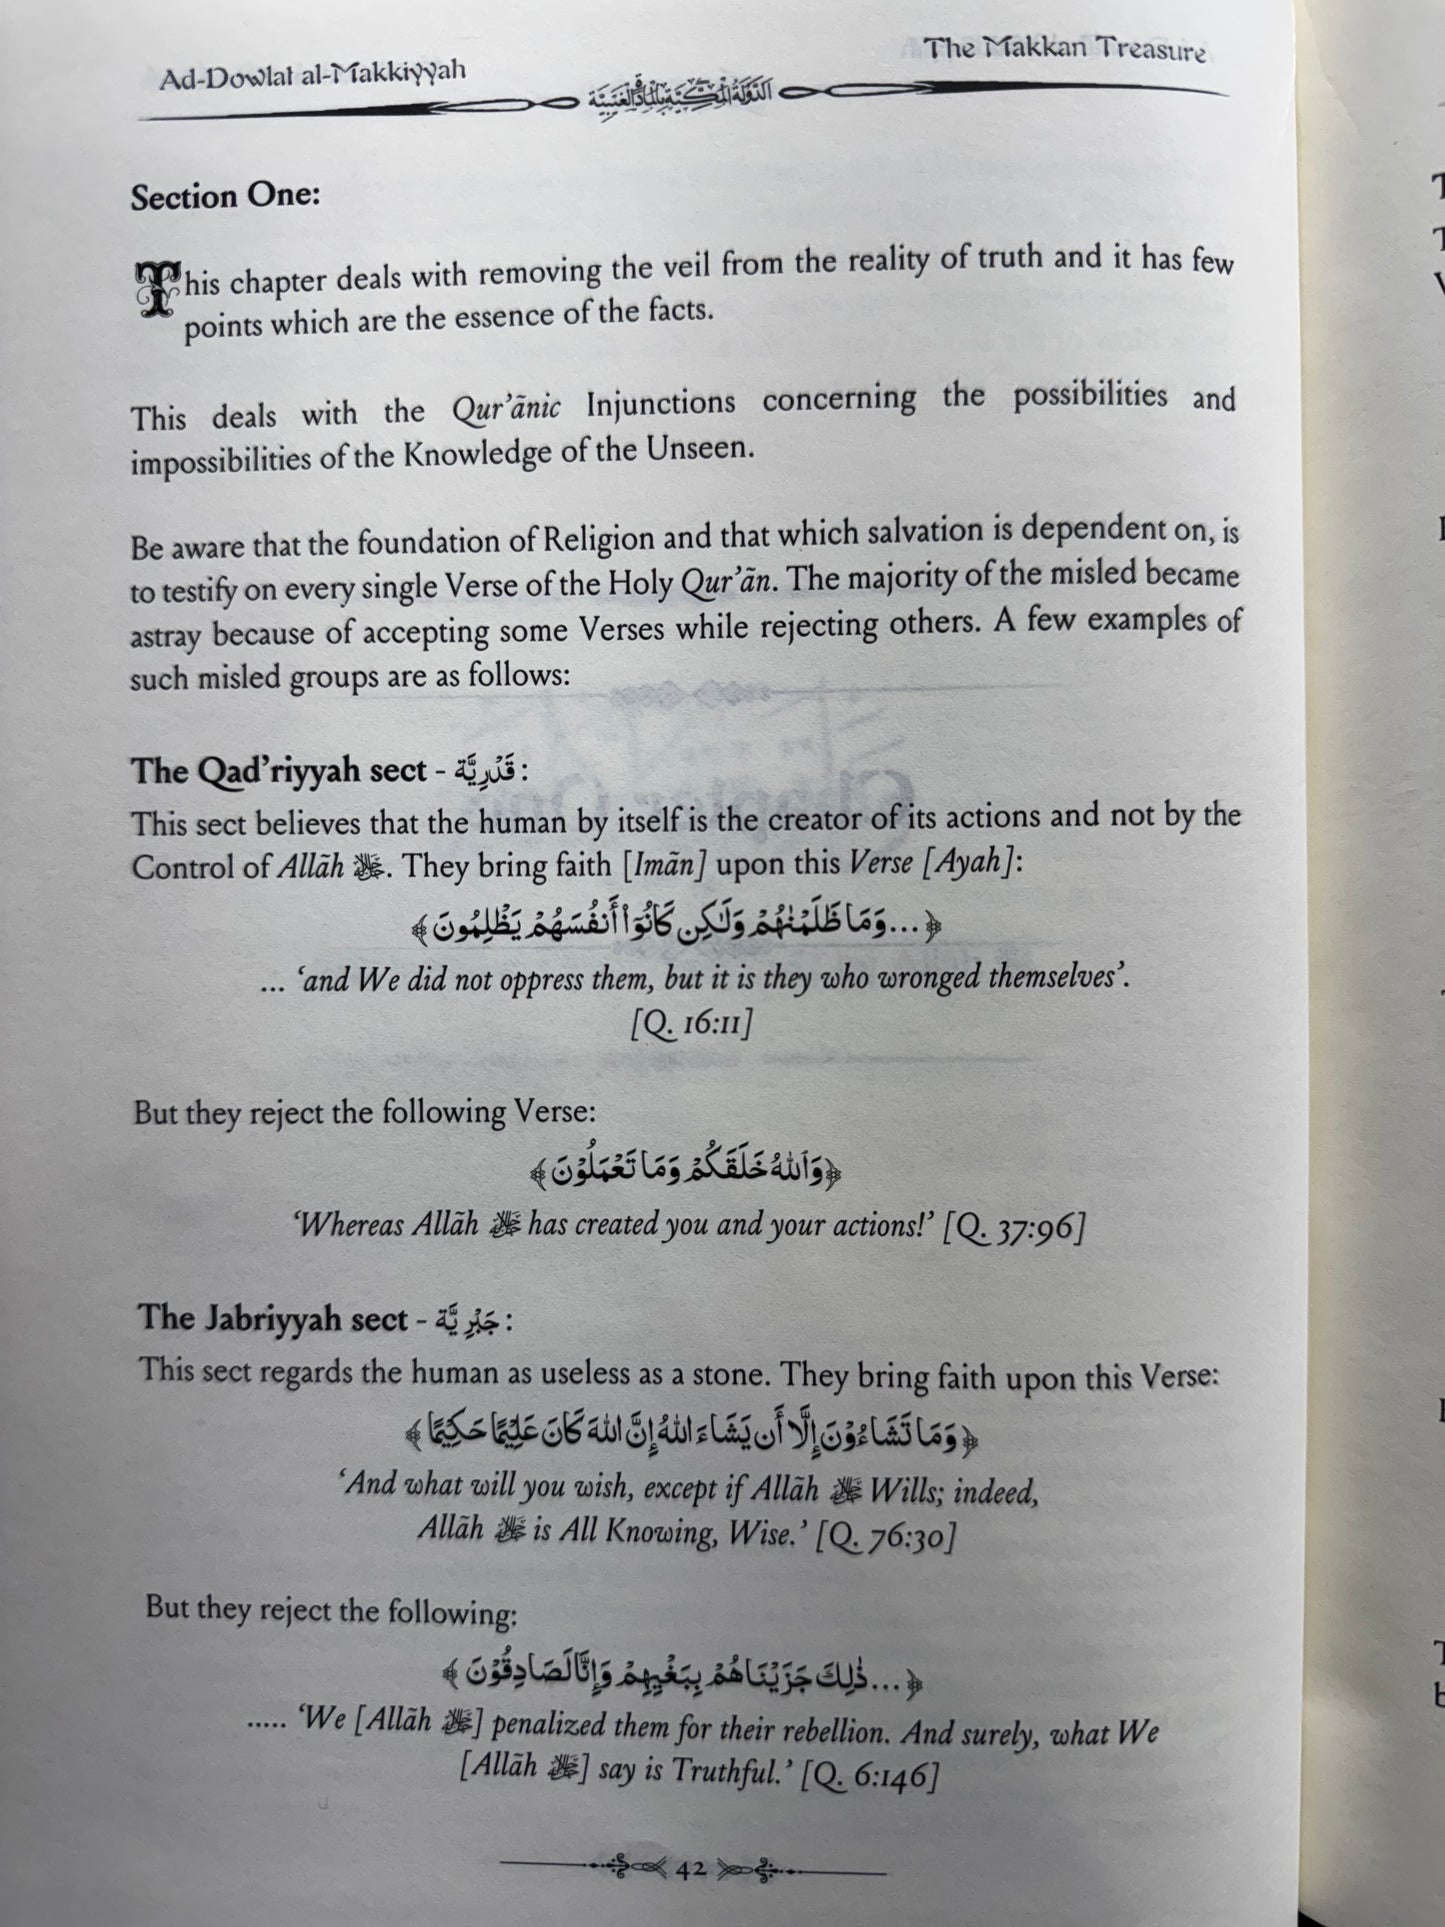 Ad-Dowlat al-Makkiyyah
The Makkan Treasure
الدولة المكية بالمادة الغيبية
Section One:
This chapter deals with removing the veil from the reality of truth and it has few
points which are the essence of the facts.
This deals with the Qur’ānic Injunctions concerning the possibilities and
impossibilities of the Knowledge of the Unseen.
Be aware that the foundation of Religion and that which salvation is dependent on, is
to testify on every single Verse of the Holy Qur’ān. The majority of the misled became
astray because of accepting some Verses while rejecting others. A few examples of
such misled groups are as follows:
The Qad’riyyah sect - قَدْرِيَّة:
This sect believes that the human by itself is the creator of its actions and not by the
Control of Allāh ﷻ. They bring faith [Imān] upon this Verse [Ayah]:
﴿...وَمَا ظَلَمْنٰهُمْ وَلَٰكِن كَانُوٓا۟ أَنفُسَهُمْ يَظْلِمُونَ﴾
... ‘and We did not oppress them, but it is they who wronged themselves’.
[Q. 16:11]
But they reject the following Verse:
﴿وَٱللهُ خَلَقَكُمْ وَمَا تَعْمَلُوْنَ﴾
‘Whereas Allāh ﷻ has created you and your actions!’ [Q. 37:96]
The Jabriyyah sect - جَبْرِيَّة:
This sect regards the human as useless as a stone. They bring faith upon this Verse:
﴿وَمَا تَشَاءُوْنَ إِلَّا أَن يَشَاءَ اللهُ إِنَّ اللهَ كَانَ عَلِيْمًا حَكِيْمًا﴾
‘And what will you wish, except if Allāh ﷻ Wills; indeed,
Allāh ﷻ is All Knowing, Wise.’ [Q. 76:30]
But they reject the following:
﴿...ذٰلِكَ جَزَيْنَاهُمْ بِبَغْيِهِمْ وَإِنَّا لَصَادِقُوْنَ﴾
..... ‘We [Allāh ﷻ] penalized them for their rebellion. And surely, what We
[Allāh ﷻ] say is Truthful.’ [Q. 6:146]
42